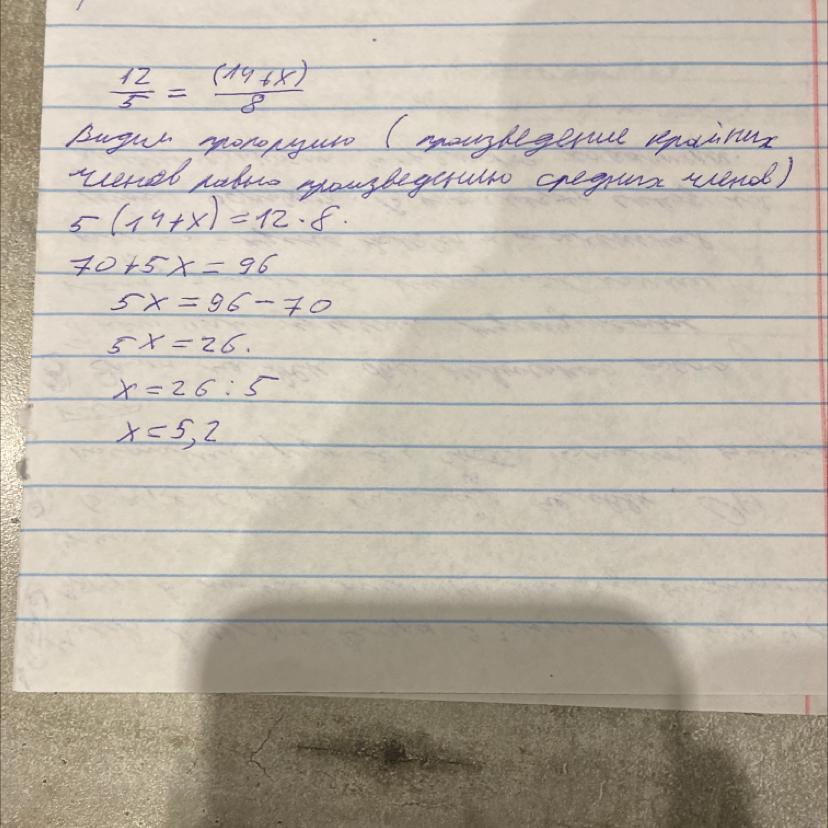 12/5 = (14+x)/8
Видим пропорцию ( произведение крайних
членов равно произведению средних членов)
5 (14+x) = 12 · 8.
70+5x = 96
5x = 96 – 70
5x = 26.
x = 26 : 5
x = 5,2